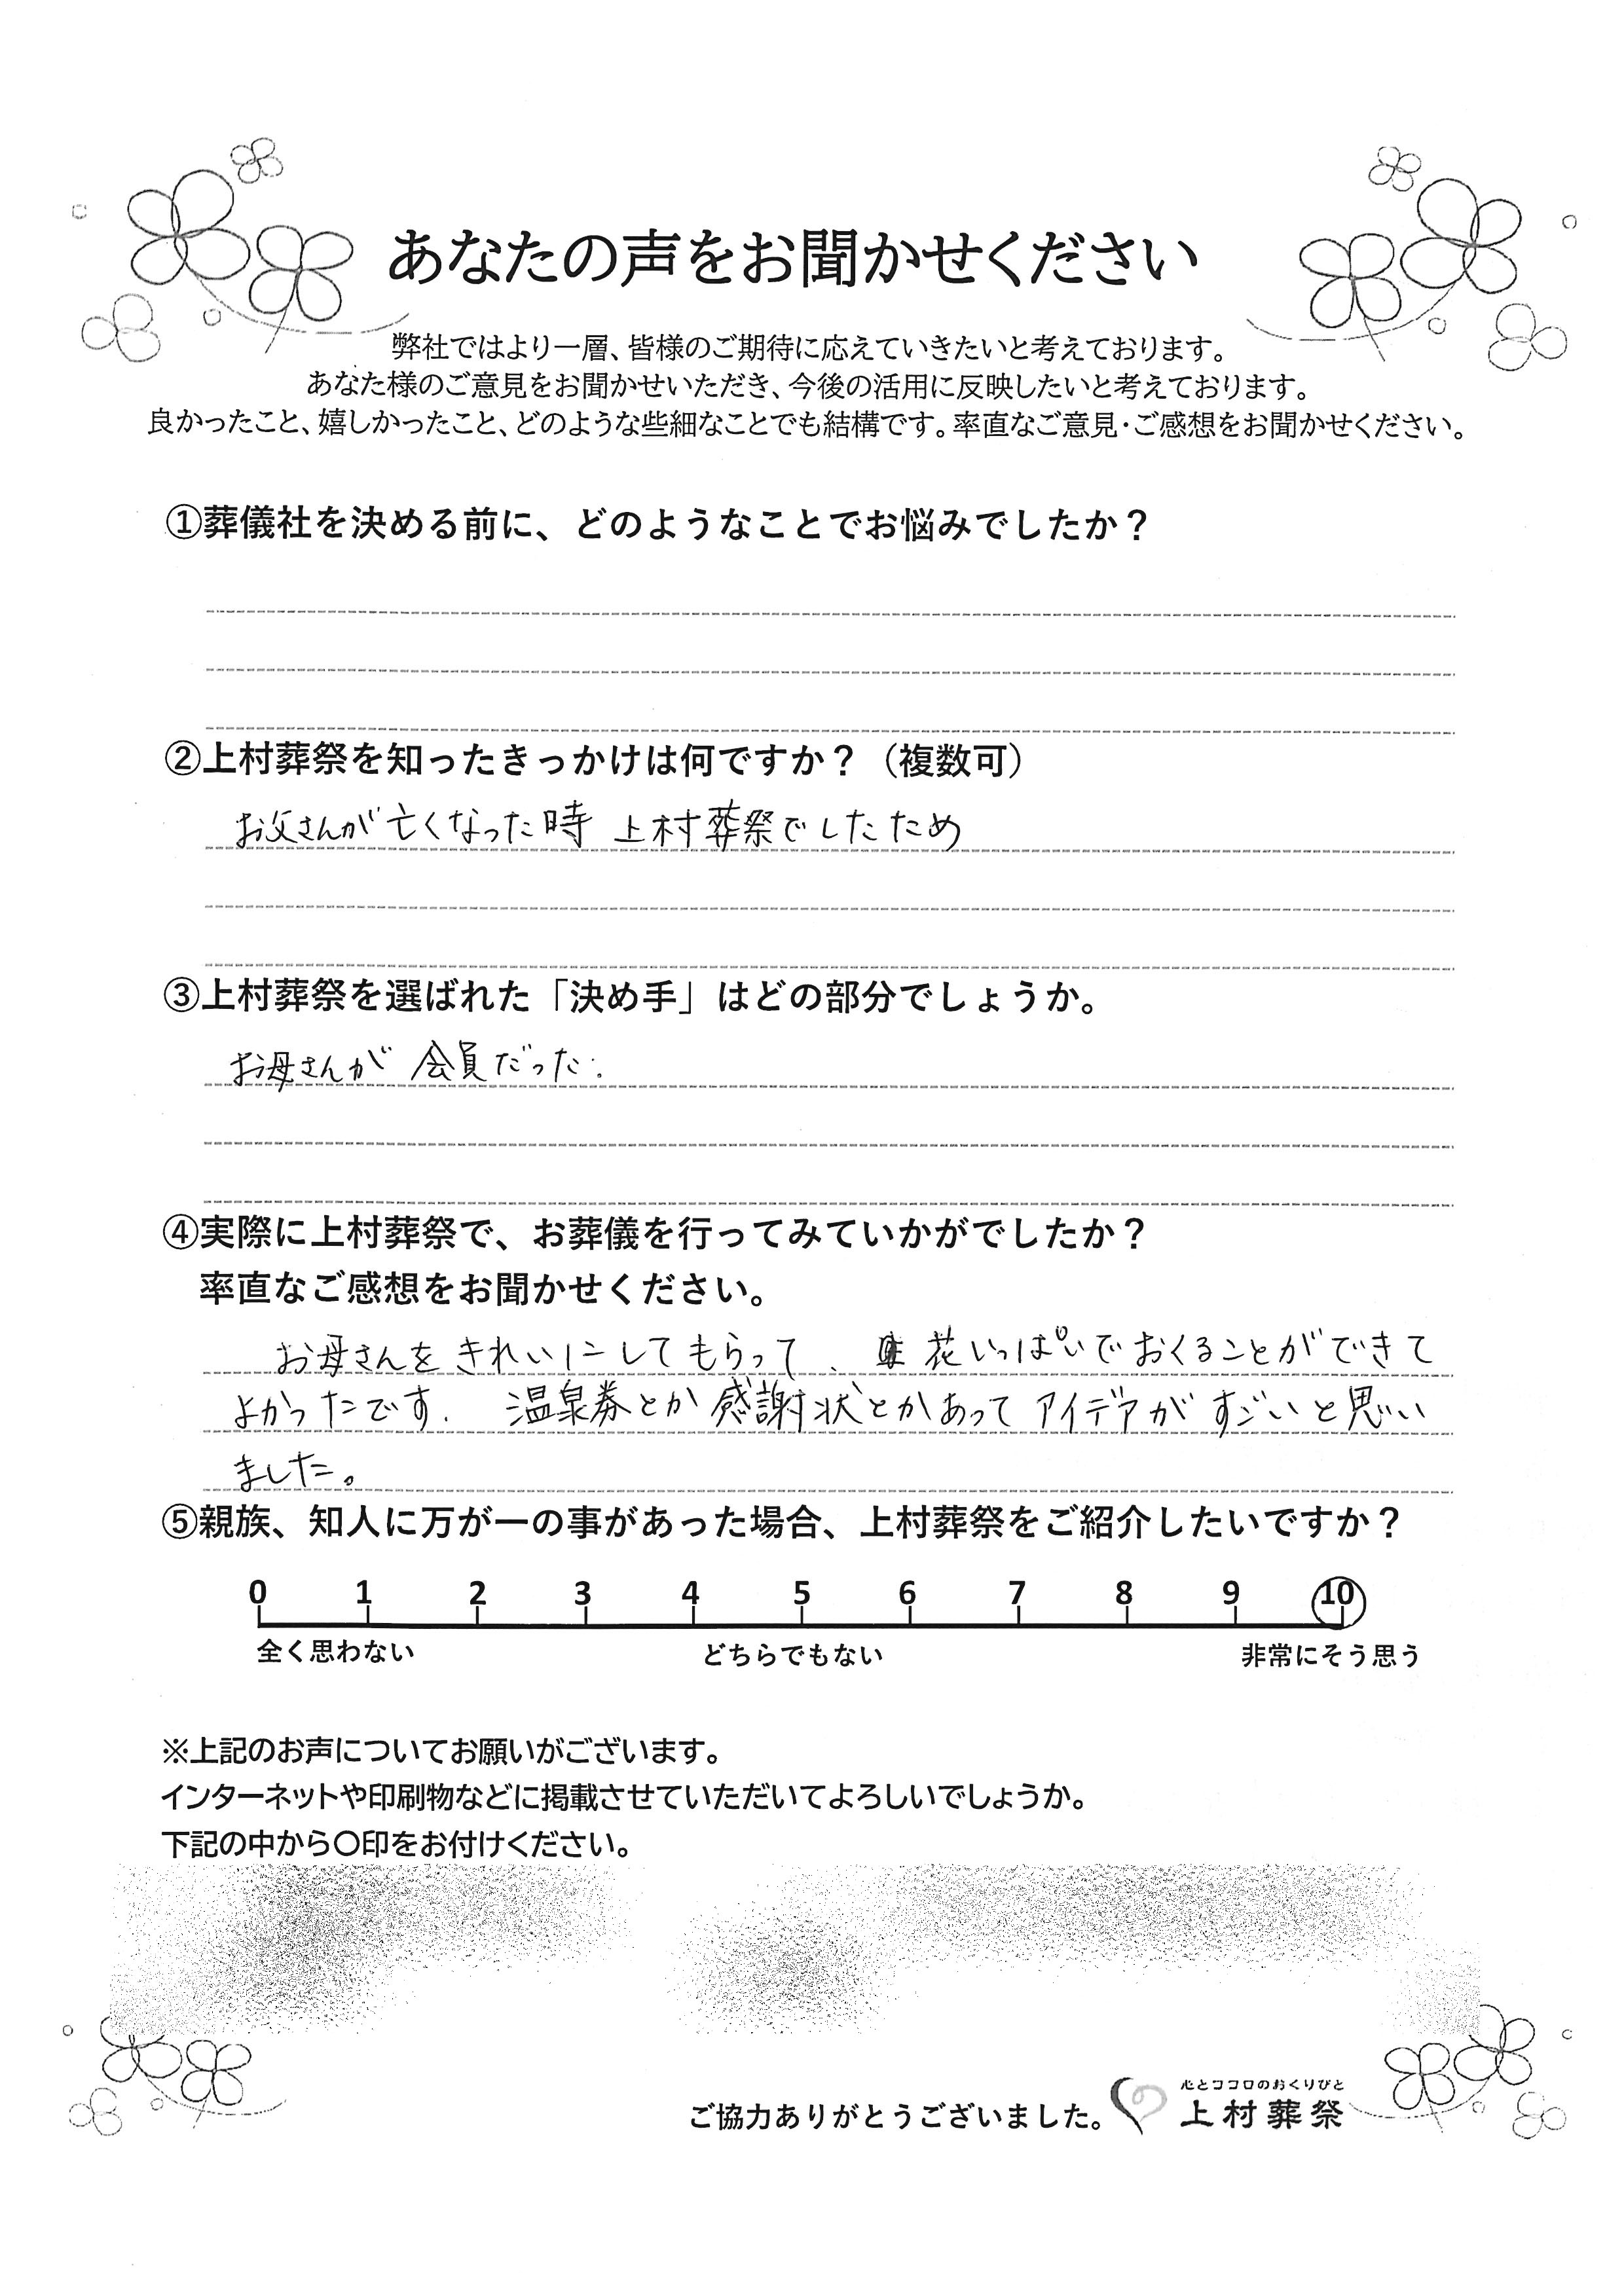 あなたの声をお聞かせください
弊社ではより一層、皆様のご期待に応えていきたいと考えております。
あなた様のご意見をお聞かせいただき、今後の活用に反映したいと考えております。
良かったこと、嬉しかったこと、どのような些細なことでも結構です。率直なご意見・ご感想をお聞かせください。
①葬儀社を決める前に、どのようなことでお悩みでしたか？
②上村葬祭を知ったきっかけは何ですか？（複数可）
お父さんが亡くなった時 上村葬祭でしたため
③上村葬祭を選ばれた「決め手」はどの部分でしょうか。
お母さんが 会員だった.
④実際に上村葬祭で、お葬儀を行ってみていかがでしたか？
率直なご感想をお聞かせください。
お母さんをきれいにしてもらって、花いっぱいでおくることができて
よかったです. 温泉券とか感謝状とかあってアイデアがすごいと思い
ました。
⑤親族、知人に万が一の事があった場合、上村葬祭をご紹介したいですか？
0 1 2 3 4 5 6 7 8 9 10
全く思わない どちらでもない 非常にそう思う
※上記のお声についてお願いがございます。
インターネットや印刷物などに掲載させていただいてよろしいでしょうか。
下記の中から〇印をお付けください。
心とココロのおくりびと
ご協力ありがとうございました。 上村葬祭